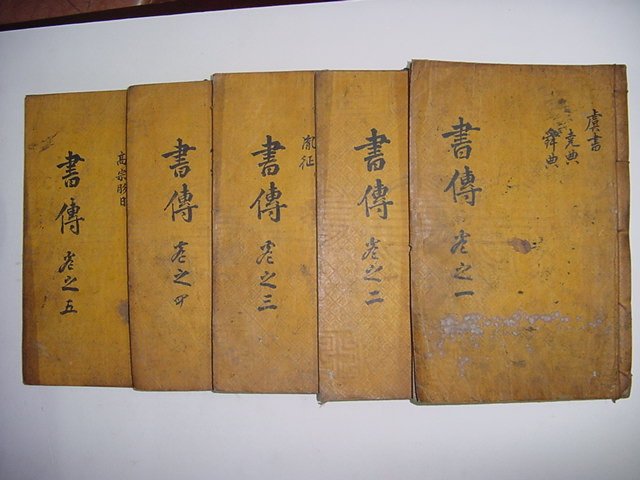 虞書
堯典
舜典
書傳 卷之一
書傳 卷之二
胤征
書傳 卷之三
書傳 卷之四
高宗肜日
書傳 卷之五